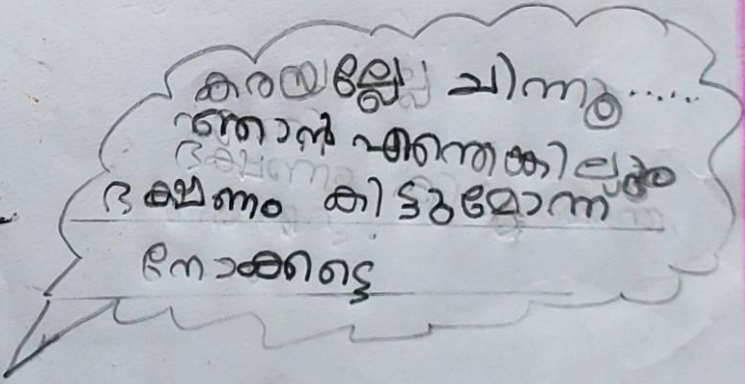 കരയല്ലേ ചിന്നൂ.....
ഞാൻ എന്തെങ്കിലും
ഭക്ഷണം കിട്ടുമോന്ന്
നോക്കട്ടെ